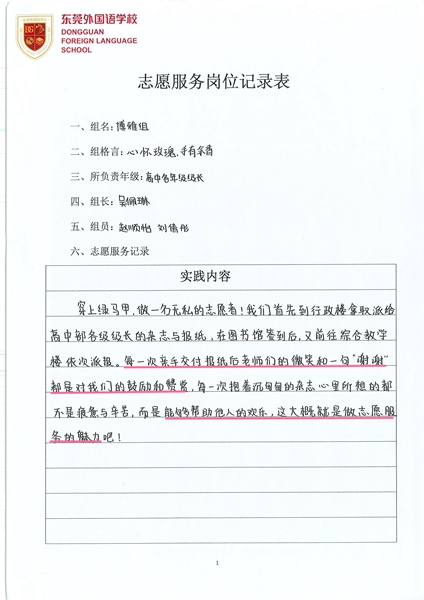 东莞外国语学校
DONGGUAN
FOREIGN LANGUAGE
SCHOOL
志愿服务岗位记录表
一、组名:博雅组
二、组格言:心怀玫瑰,手有余香
三、所负责年级:高中各年级级长
四、组长:吴佩琳
五、组员:赵顺怡 刘倩彤
六、志愿服务记录
实践内容
穿上绿马甲,做一名无私的志愿者!我们首先到行政楼拿取派给
高中部各级级长的杂志与报纸,在图书馆签到后,又前往综合教学
楼依次派报。每一次亲手交付报纸后老师们的微笑和一句“谢谢”
都是对我们的鼓励和赞赏,每一次抱着沉甸甸的杂志心里所想的都
不是疲惫与辛苦,而是能够帮助他人的欢乐,这大概就是做志愿服
务的魅力吧!
1